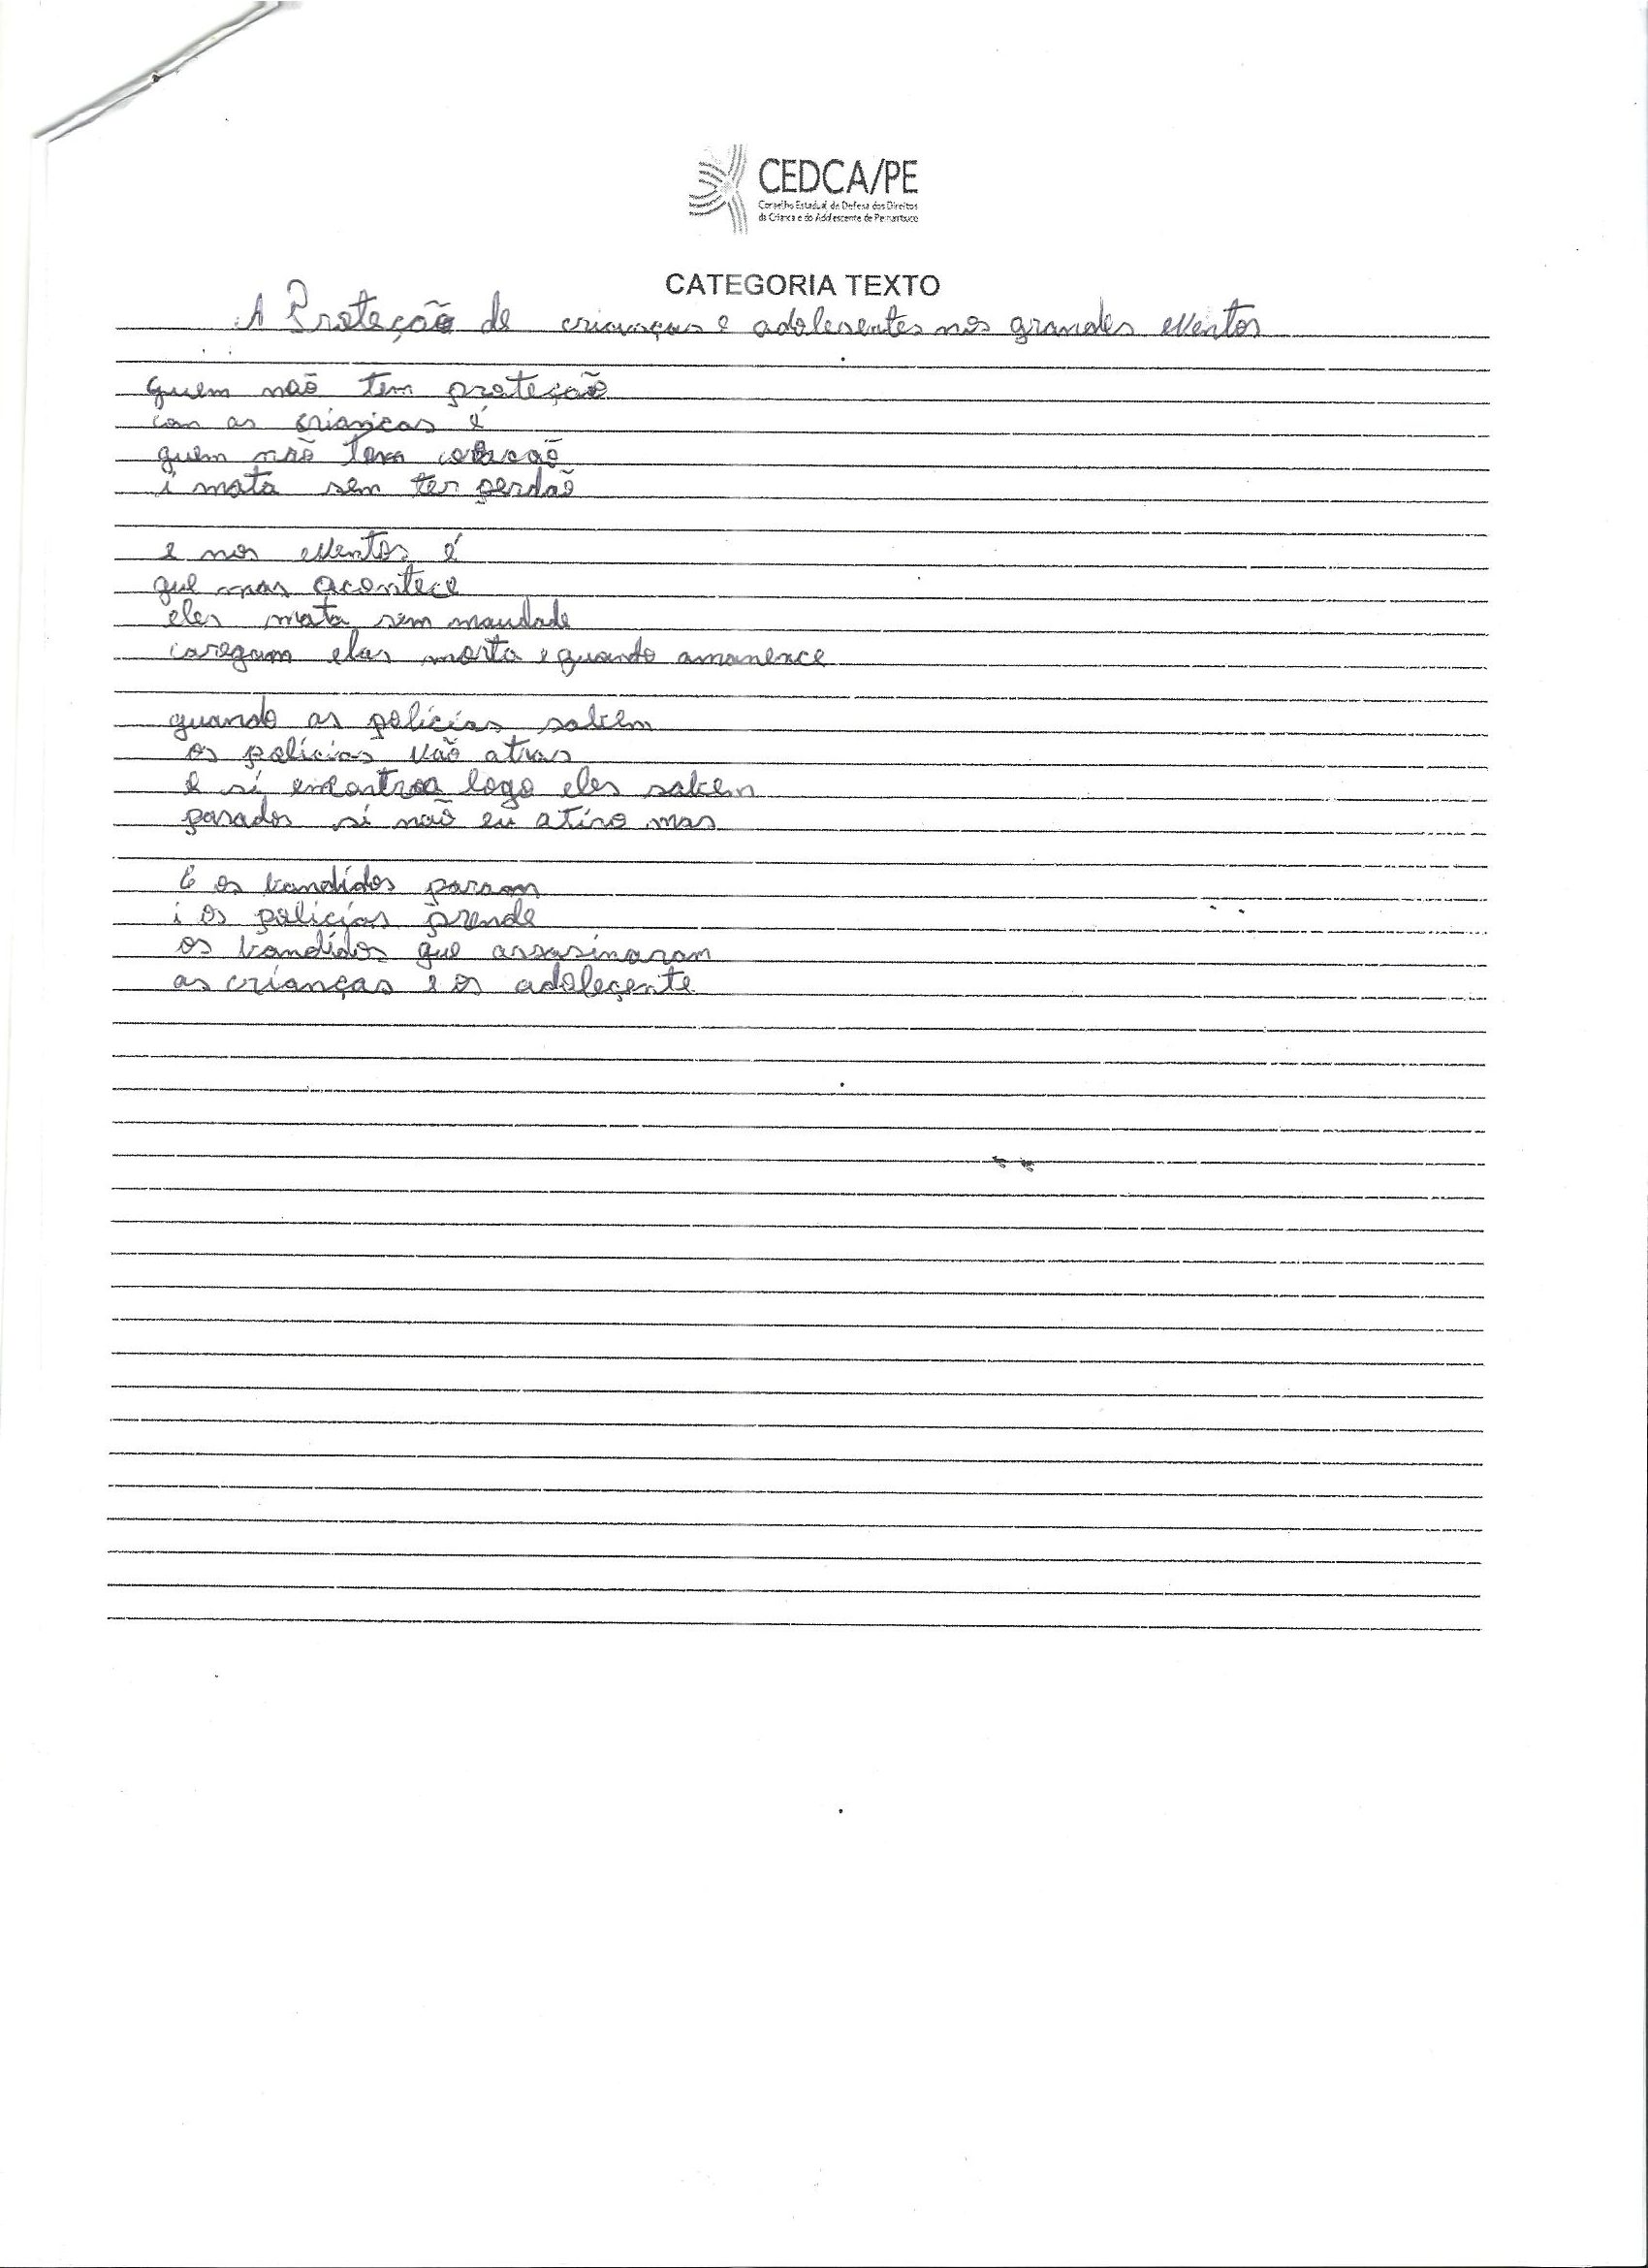 CEDCA/PE
Conselho Estadual de Defesa dos Direitos
da Criança e do Adolescente de Pernambuco
CATEGORIA TEXTO
A Proteção de crianças e adolesentes nos grandes eventos
quem não tem proteção
com as crianças é
quem não tem coração
i mata sem ter perdão
e nos eventos é
que mas acontece
eles mata sem maudade
caregam elas morta e quando amanhece
quando as polícias sabem
os polícias vão atras
e si encontra logo eles sabem
parados si não eu atiro mas
E os bandidos param
i os polícias prende
os bandidos que assasinaram
as crianças e os adoleçente